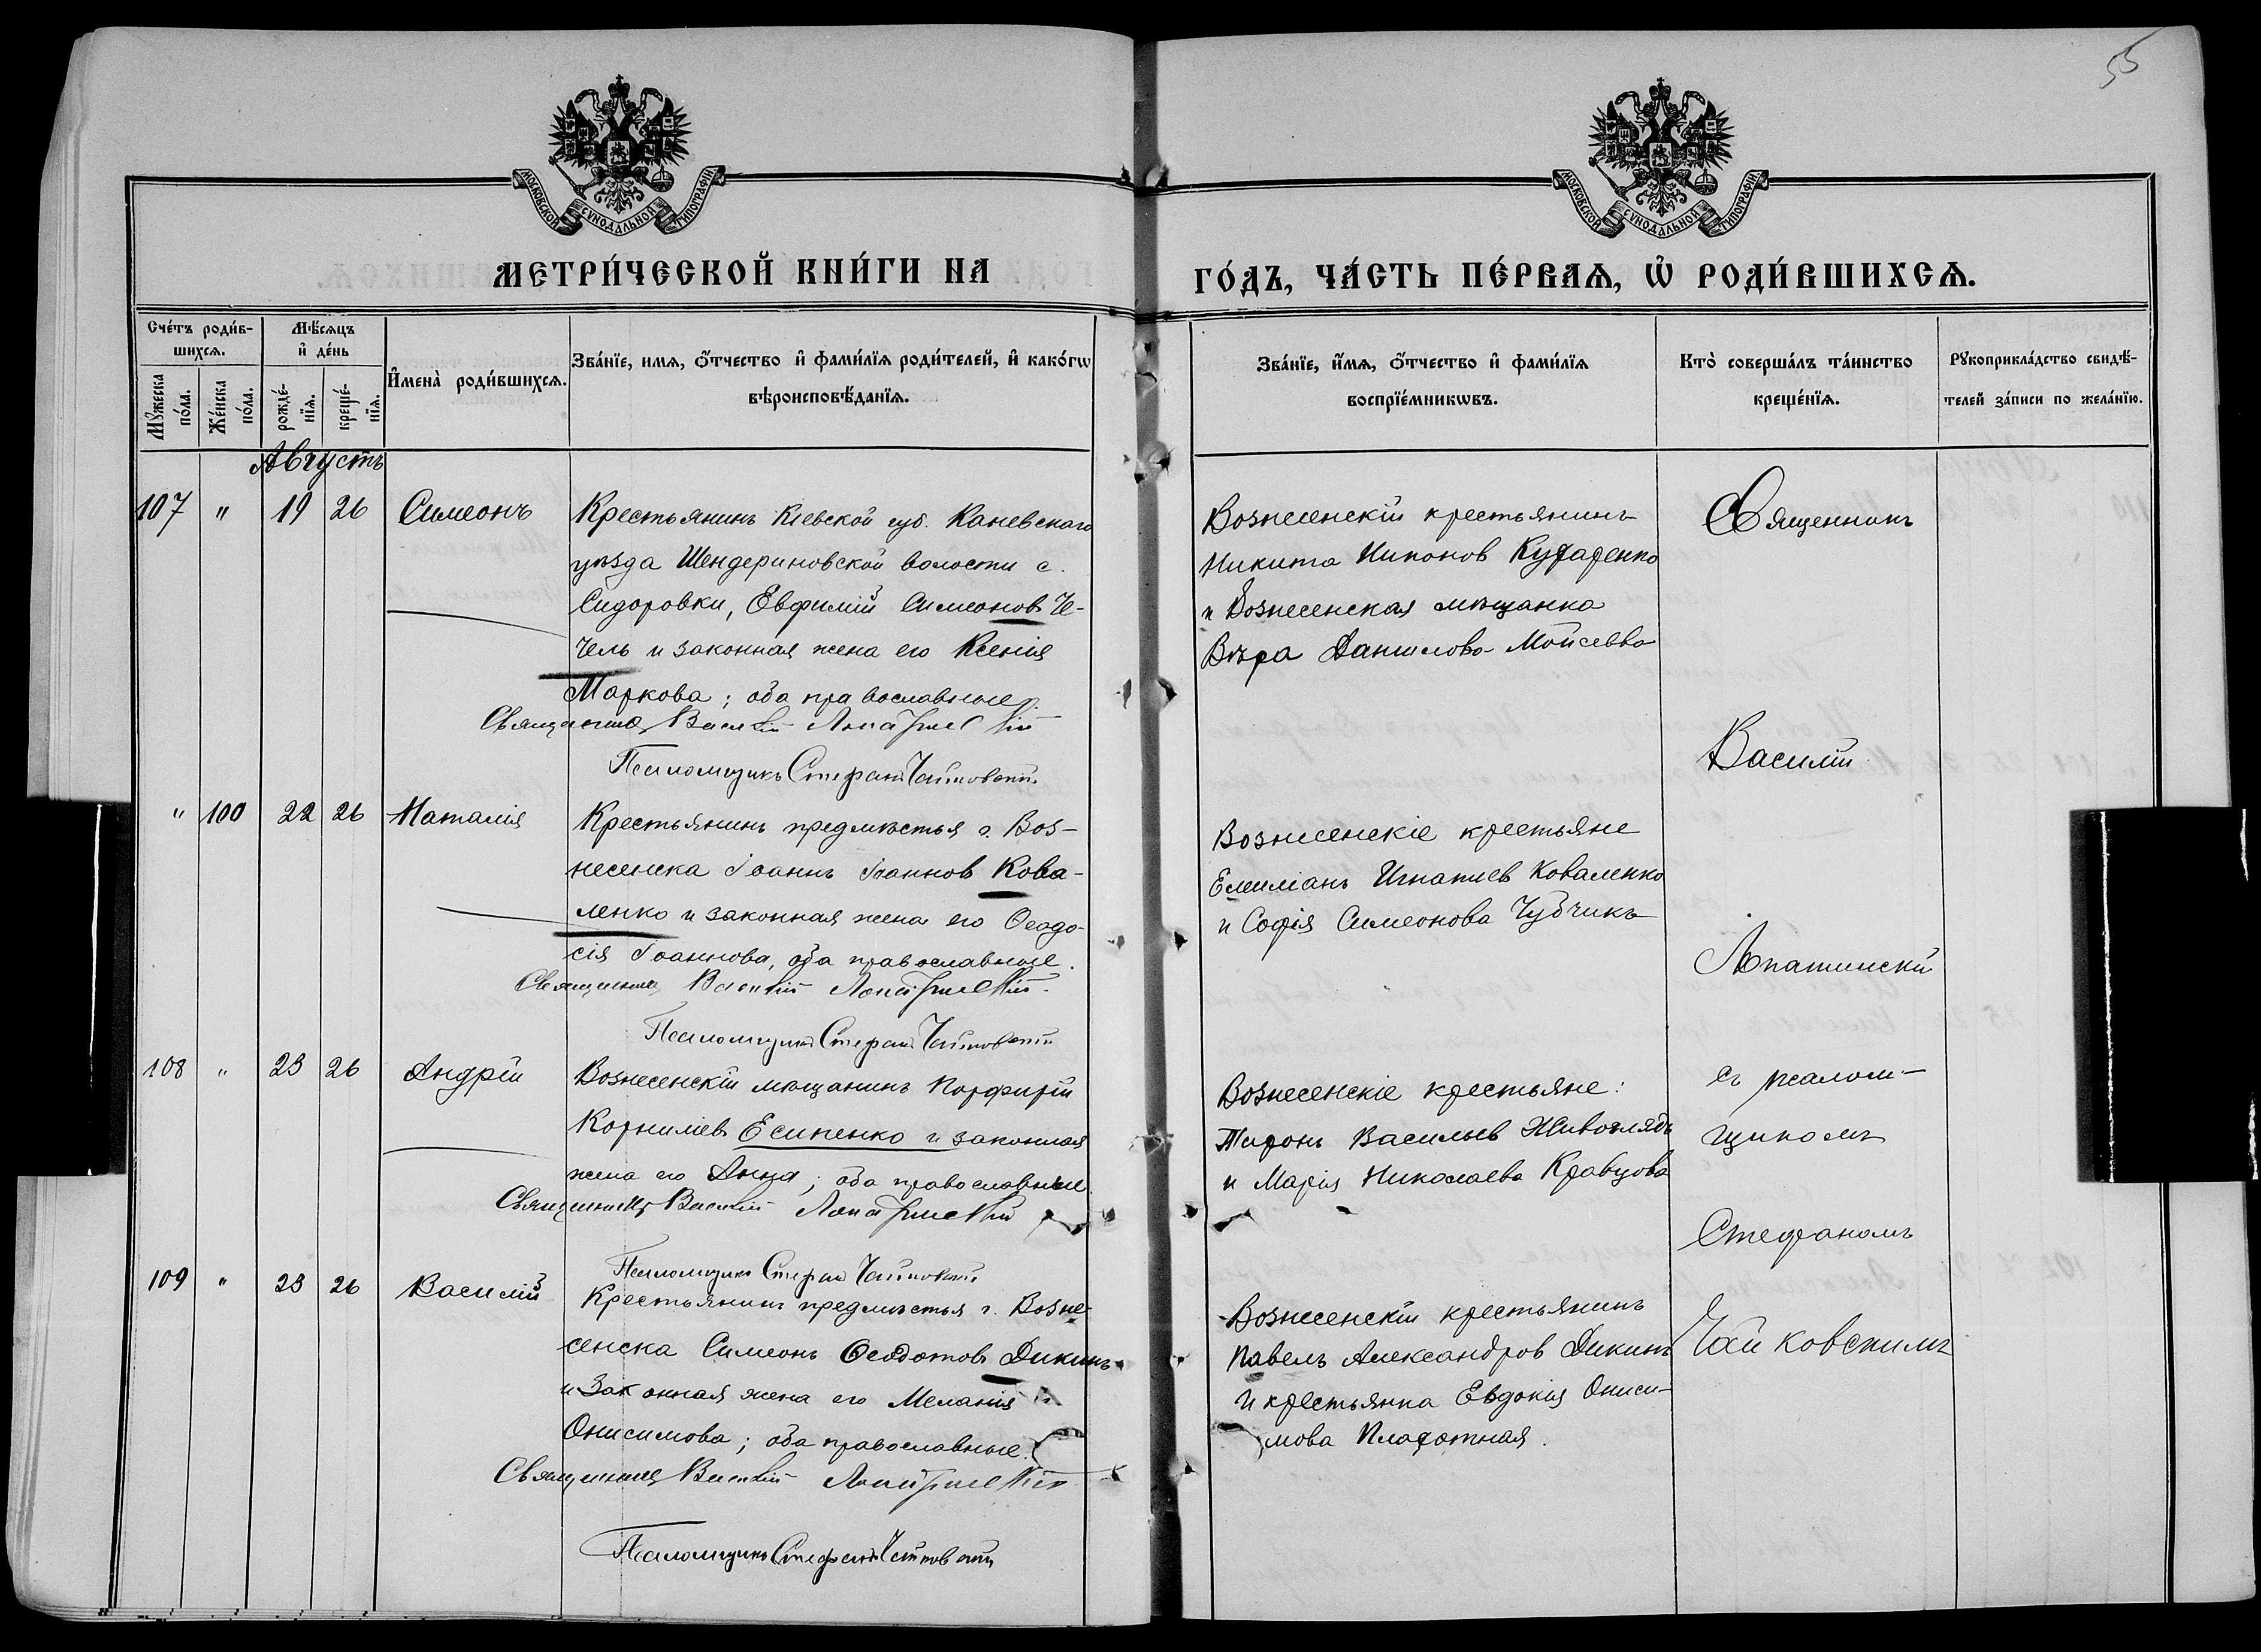 55
МОСКОВСКОЙ СУНОДАЛЬНОЙ ТИПОГРАФІИ
МОСКОВСКОЙ СУНОДАЛЬНОЙ ТИПОГРАФІИ
МЕТРИ́ЧЕСКОЙ КНИ́ГИ НА
ГО́ДЪ, ЧА́СТЬ ПЕ́РВАѦ, Ѡ҆ РОДИ́ВШИХСѦ.
Сче́тъ роди́в-
шихсѧ.
Мꙋ́жеска по́ла.
Же́нска по́ла.
Мѣ́сѧцъ
и҆ де́нь
рожде́-
нїѧ.
креще́-
нїѧ.
И҆мена̀ роди́вшихсѧ.
Зва́нїе, имѧ, ѻ҆́тчество и҆ фами́лїѧ роди́телей, и҆ како́гѡ
вѣроисповѣ́данїѧ.
Зва́нїе, и҆́мѧ, ѻ҆́тчество и҆ фами́лїѧ
воспрїе́мникѡвъ.
Кто̀ соверша́лъ та́инство
креще́нїѧ.
Рꙋкоприкла́дство свидѣ́-
телей за́писи по жела́нїю.
Августъ
107 " 19 26 Симеонъ
Крестьянинъ Кіевской губ. Каневскаго
уѣзда Шендериновской волости с.
Сидоровки, Евфимій Симеонов Че-
чель и законная жена его Ксенія
Маркова; оба православные.
Священникъ Василій Лопатинскій
Псаломщикъ Стефанъ Чайковскій
Вознесенскій крестьянинъ
Никита Никонов Кухаренко
и Вознесенская мѣщанка
Вѣра Данилова Моисеева
" 100 22 26 Наталія
Крестьянинъ предмѣстья г. Воз-
несенска Іоаннъ Іоаннов Кова-
ленко и законная жена его Ѳеодо-
сія Іоаннова, оба православные.
Священникъ Василій Лопатинскій
Псаломщикъ Стефанъ Чайковскій
Вознесенскіе крестьяне
Емиліанъ Игнатиев Коваленко
и Софія Симеонова Чубчикъ
108 " 23 26 Андрій
Вознесенскій мѣщанинъ Порфирій
Корниліевъ Есипенко и законная
жена его Анна; оба православные
Священникъ Василій Лопатинскій
Псаломщикъ Стефанъ Чайковскій
Вознесенскіе крестьяне:
Тиронъ Васильев Живоглядъ
и Марія Николаева Кравцова
109 " 23 26 Василій
Крестьянинъ предмѣстья г. Возне-
сенска Симеонъ Ѳеодотовъ Дикинъ
и законная жена его Меланія
Онисимова; оба православные.
Священникъ Василій Лопатинскій
Псаломщикъ Стефанъ Чайковскій
Вознесенскій крестьянинъ
Павелъ Александров Дикинъ
и крестьянка Евдокія Ониси-
мова Плахотная.
Священникъ
Василій
Лопатинскій
съ псалом-
щикомъ
Стефаномъ
Чайковскимъ